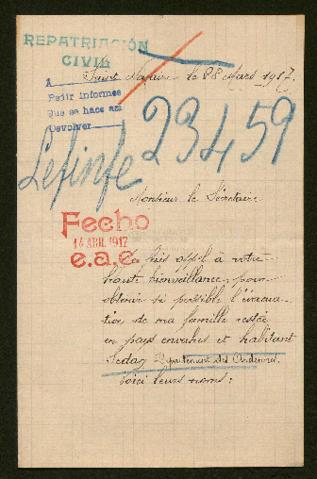 REPATRIACIÓN
CIVIL
Saint Nazaire le 28 Mars 1917.
A
Pedir informes
Que se hace así
Devolver
23459
Monsieur le Secrétaire
Fecho
14 ABR. 1917
e.a.c.
fais appel à votre
haute bienveillance, pour
obtenir si possible l'évacua-
tion de ma famille restée
en pays envahis et habitant
Sedan Département des Ardennes.
Voici leurs noms: